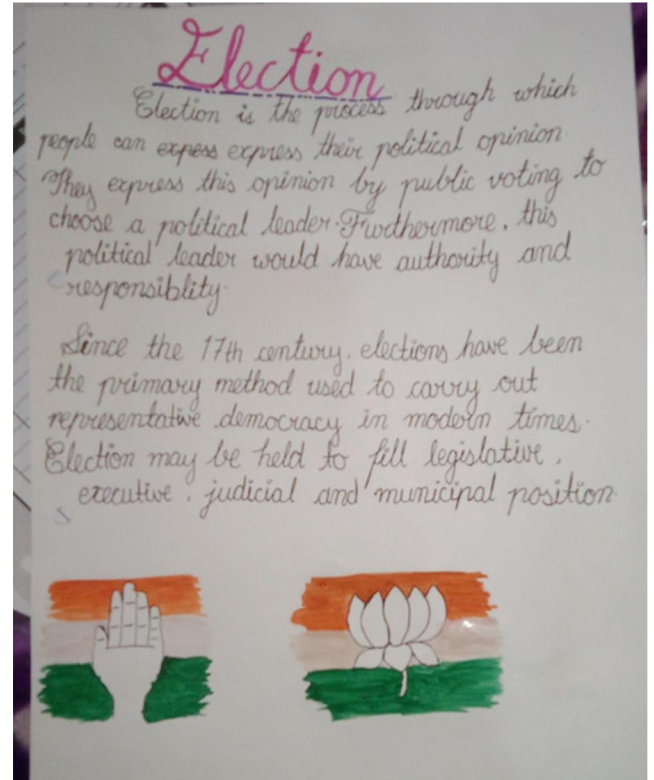 Election
Election is the process through which
people can expess express their political opinion.
They express this opinion by public voting to
choose a political leader. Furthermore, this
political leader would have authority and
responsiblity.
Since the 17th century, elections have been
the primary method used to carry out
representative democracy in modern times.
Election may be held to fill legislative,
executive, judicial and municipal position.